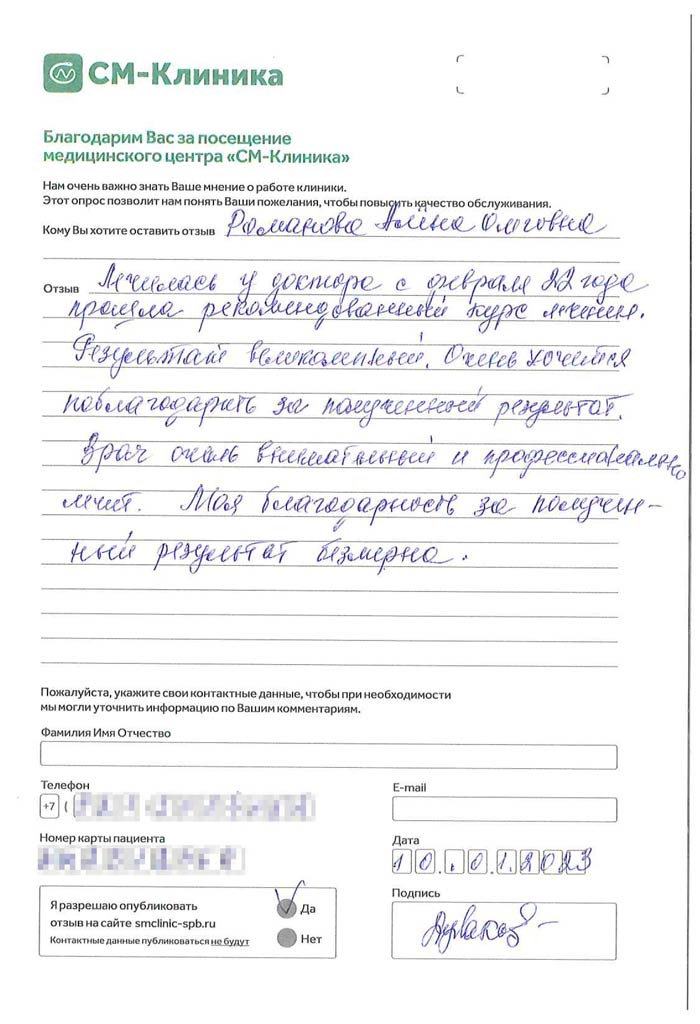 СМ-Клиника
Благодарим Вас за посещение
медицинского центра «СМ-Клиника»
Нам очень важно знать Ваше мнение о работе клиники.
Этот опрос позволит нам понять Ваши пожелания, чтобы повысить качество обслуживания.
Кому Вы хотите оставить отзыв Романова Алёна Олеговна
Отзыв Лечилась у доктора с февраля 22 года
прошла рекомендованный курс лечения.
Результат великолепный. Очень хочется
поблагодарить за полученный результат.
Врач очень внимательный и профессионально
лечит. Моя благодарность за получен-
ный результат безмерна.
Пожалуйста, укажите свои контактные данные, чтобы при необходимости
мы могли уточнить информацию по Вашим комментариям.
Фамилия Имя Отчество
Телефон
E-mail
+7 (
Номер карты пациента
Дата
10.01.2023
Подпись
Я разрешаю опубликовать
отзыв на сайте smclinic-spb.ru
Контактные данные публиковаться не будут
Да
Нет